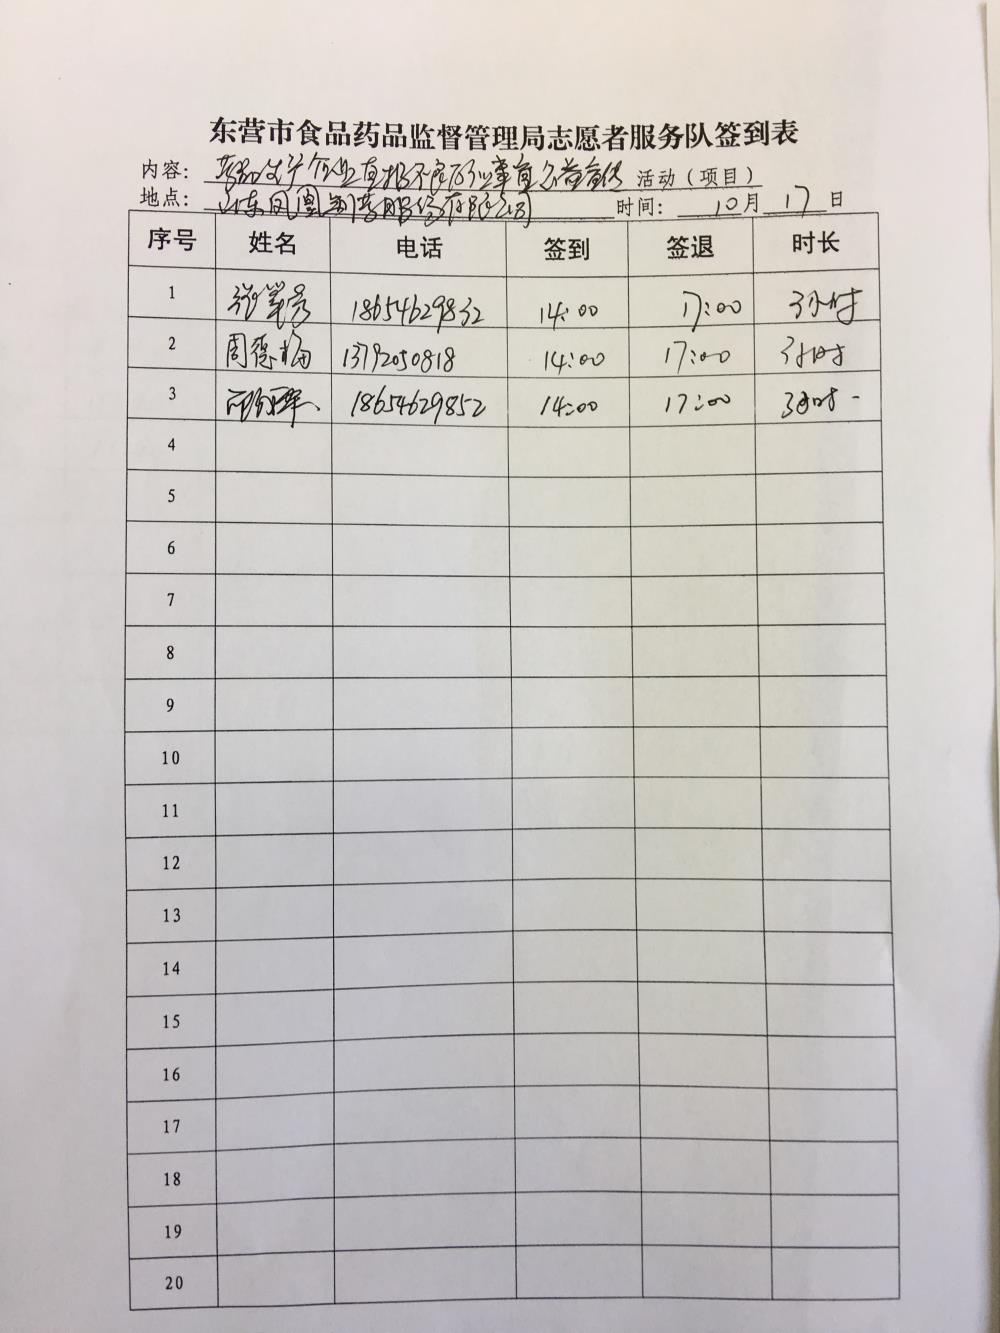 东营市食品药品监督管理局志愿者服务队签到表
内容： 直报不良 事宜公益宣传 活动（项目）
地点： 山东凤凰制药股份有限公司 时间： 10月 17日
序号 姓名 电话 签到 签退 时长
1 18654629832 14:00 17:00 3小时
2 周德 13792050818 14:00 17:00 3小时
3 18654629852 14:00 17:00 3小时
4
5
6
7
8
9
10
11
12
13
14
15
16
17
18
19
20